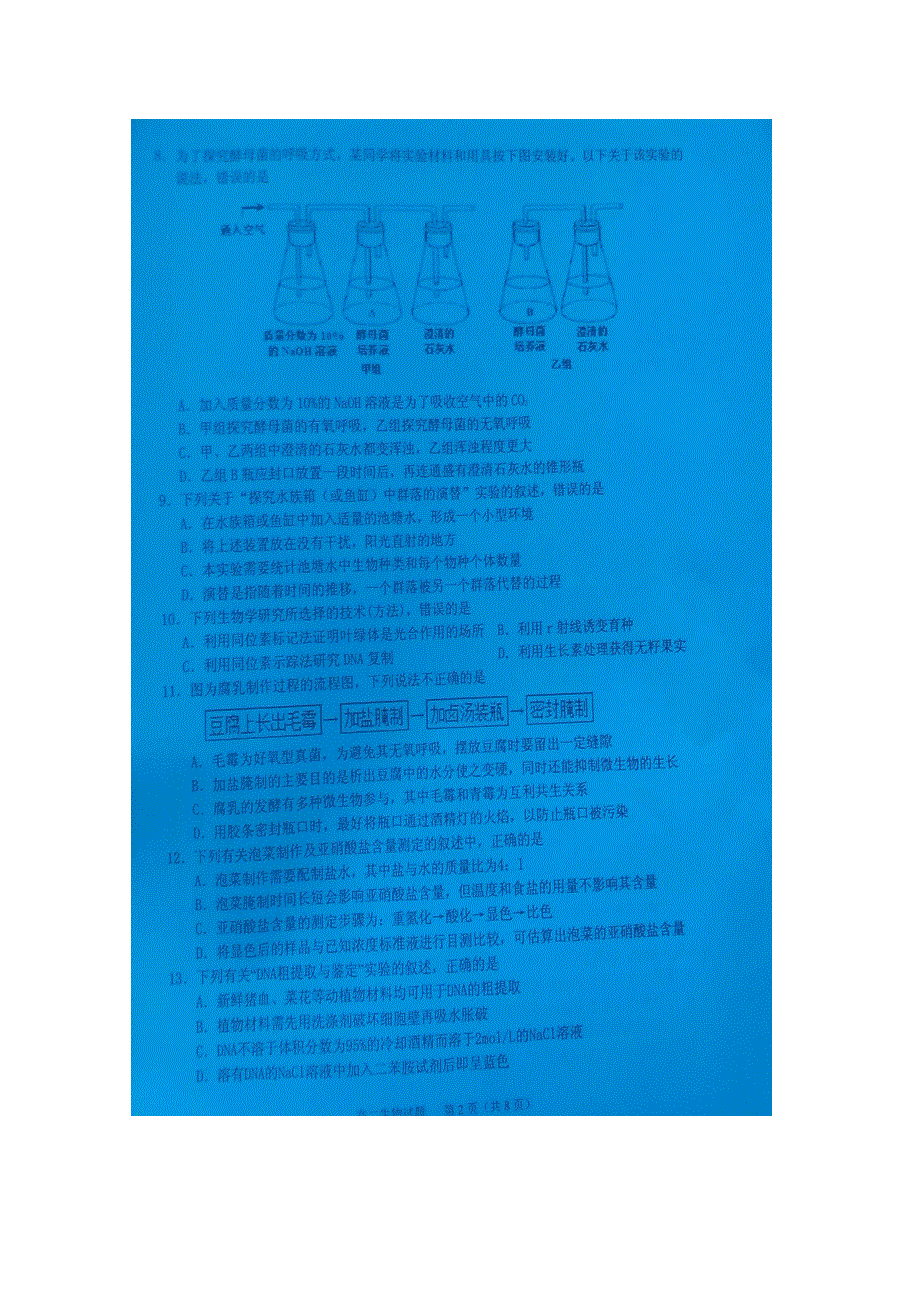 8. 为了探究酵母菌的呼吸方式，某同学将实验材料和用具按下图安装好。以下关于该实验的
说法，错误的是
通入空气
A
B
质量分数为 10%
的 NaOH 溶液
酵母菌
培养液
澄清的
石灰水
酵母菌
培养液
澄清的
石灰水
甲组
乙组
A. 加入质量分数为10%的 NaOH 溶液是为了吸收空气中的 CO₂
B. 甲组探究酵母菌的有氧呼吸，乙组探究酵母菌的无氧呼吸
C. 甲、乙两组中澄清的石灰水都变浑浊，乙组浑浊程度更大
D. 乙组 B 瓶应封口放置一段时间后，再连通盛有澄清石灰水的锥形瓶
9. 下列关于“探究水族箱（或鱼缸）中群落的演替”实验的叙述，错误的是
A. 在水族箱或鱼缸中加入适量的池塘水，形成一个小型环境
B. 将上述装置放在没有干扰，阳光直射的地方
C. 本实验需要统计池塘水中生物种类和每个物种个体数量
D. 演替是指随着时间的推移，一个群落被另一个群落代替的过程
10. 下列生物学研究所选择的技术(方法)，错误的是
A. 利用同位素标记法证明叶绿体是光合作用的场所 B. 利用 r 射线诱变育种
C. 利用同位素示踪法研究 DNA 复制 D. 利用生长素处理获得无籽果实
11. 图为腐乳制作过程的流程图，下列说法不正确的是
豆腐上长出毛霉→加盐腌制→加卤汤装瓶→密封腌制
A. 毛霉为好氧型真菌，为避免其无氧呼吸，摆放豆腐时要留出一定缝隙
B. 加盐腌制的主要目的是析出豆腐中的水分使之变硬，同时还能抑制微生物的生长
C. 腐乳的发酵有多种微生物参与，其中毛霉和青霉为互利共生关系
D. 用胶条密封瓶口时，最好将瓶口通过酒精灯的火焰，以防止瓶口被污染
12. 下列有关泡菜制作及亚硝酸盐含量测定的叙述中，正确的是
A. 泡菜制作需要配制盐水，其中盐与水的质量比为4：1
B. 泡菜腌制时间长短会影响亚硝酸盐含量，但温度和食盐的用量不影响其含量
C. 亚硝酸盐含量的测定步骤为：重氮化→酸化→显色→比色
D. 将显色后的样品与已知浓度标准液进行目测比较，可估算出泡菜的亚硝酸盐含量
13. 下列有关“DNA粗提取与鉴定”实验的叙述，正确的是
A. 新鲜猪血、菜花等动植物材料均可用于DNA的粗提取
B. 植物材料需先用洗涤剂破坏细胞壁再吸水胀破
C. DNA不溶于体积分数为95%的冷却酒精而溶于2mol/L的NaCl溶液
D. 溶有DNA的NaCl溶液中加入二苯胺试剂后即呈蓝色
高二生物试题 第 2 页（共 8 页）